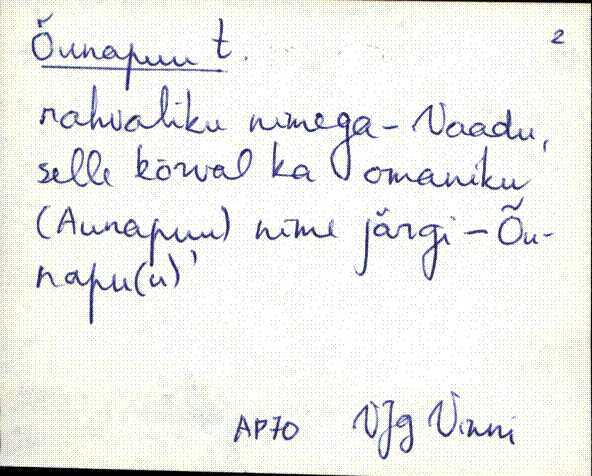 Õunapuu t. 2
rahvaliku nimega – Vaadu,
selle kõrval ka omaniku
(Aunapuu) nime järgi – Õu-
napu(u)'
AP70 VJg Vinni